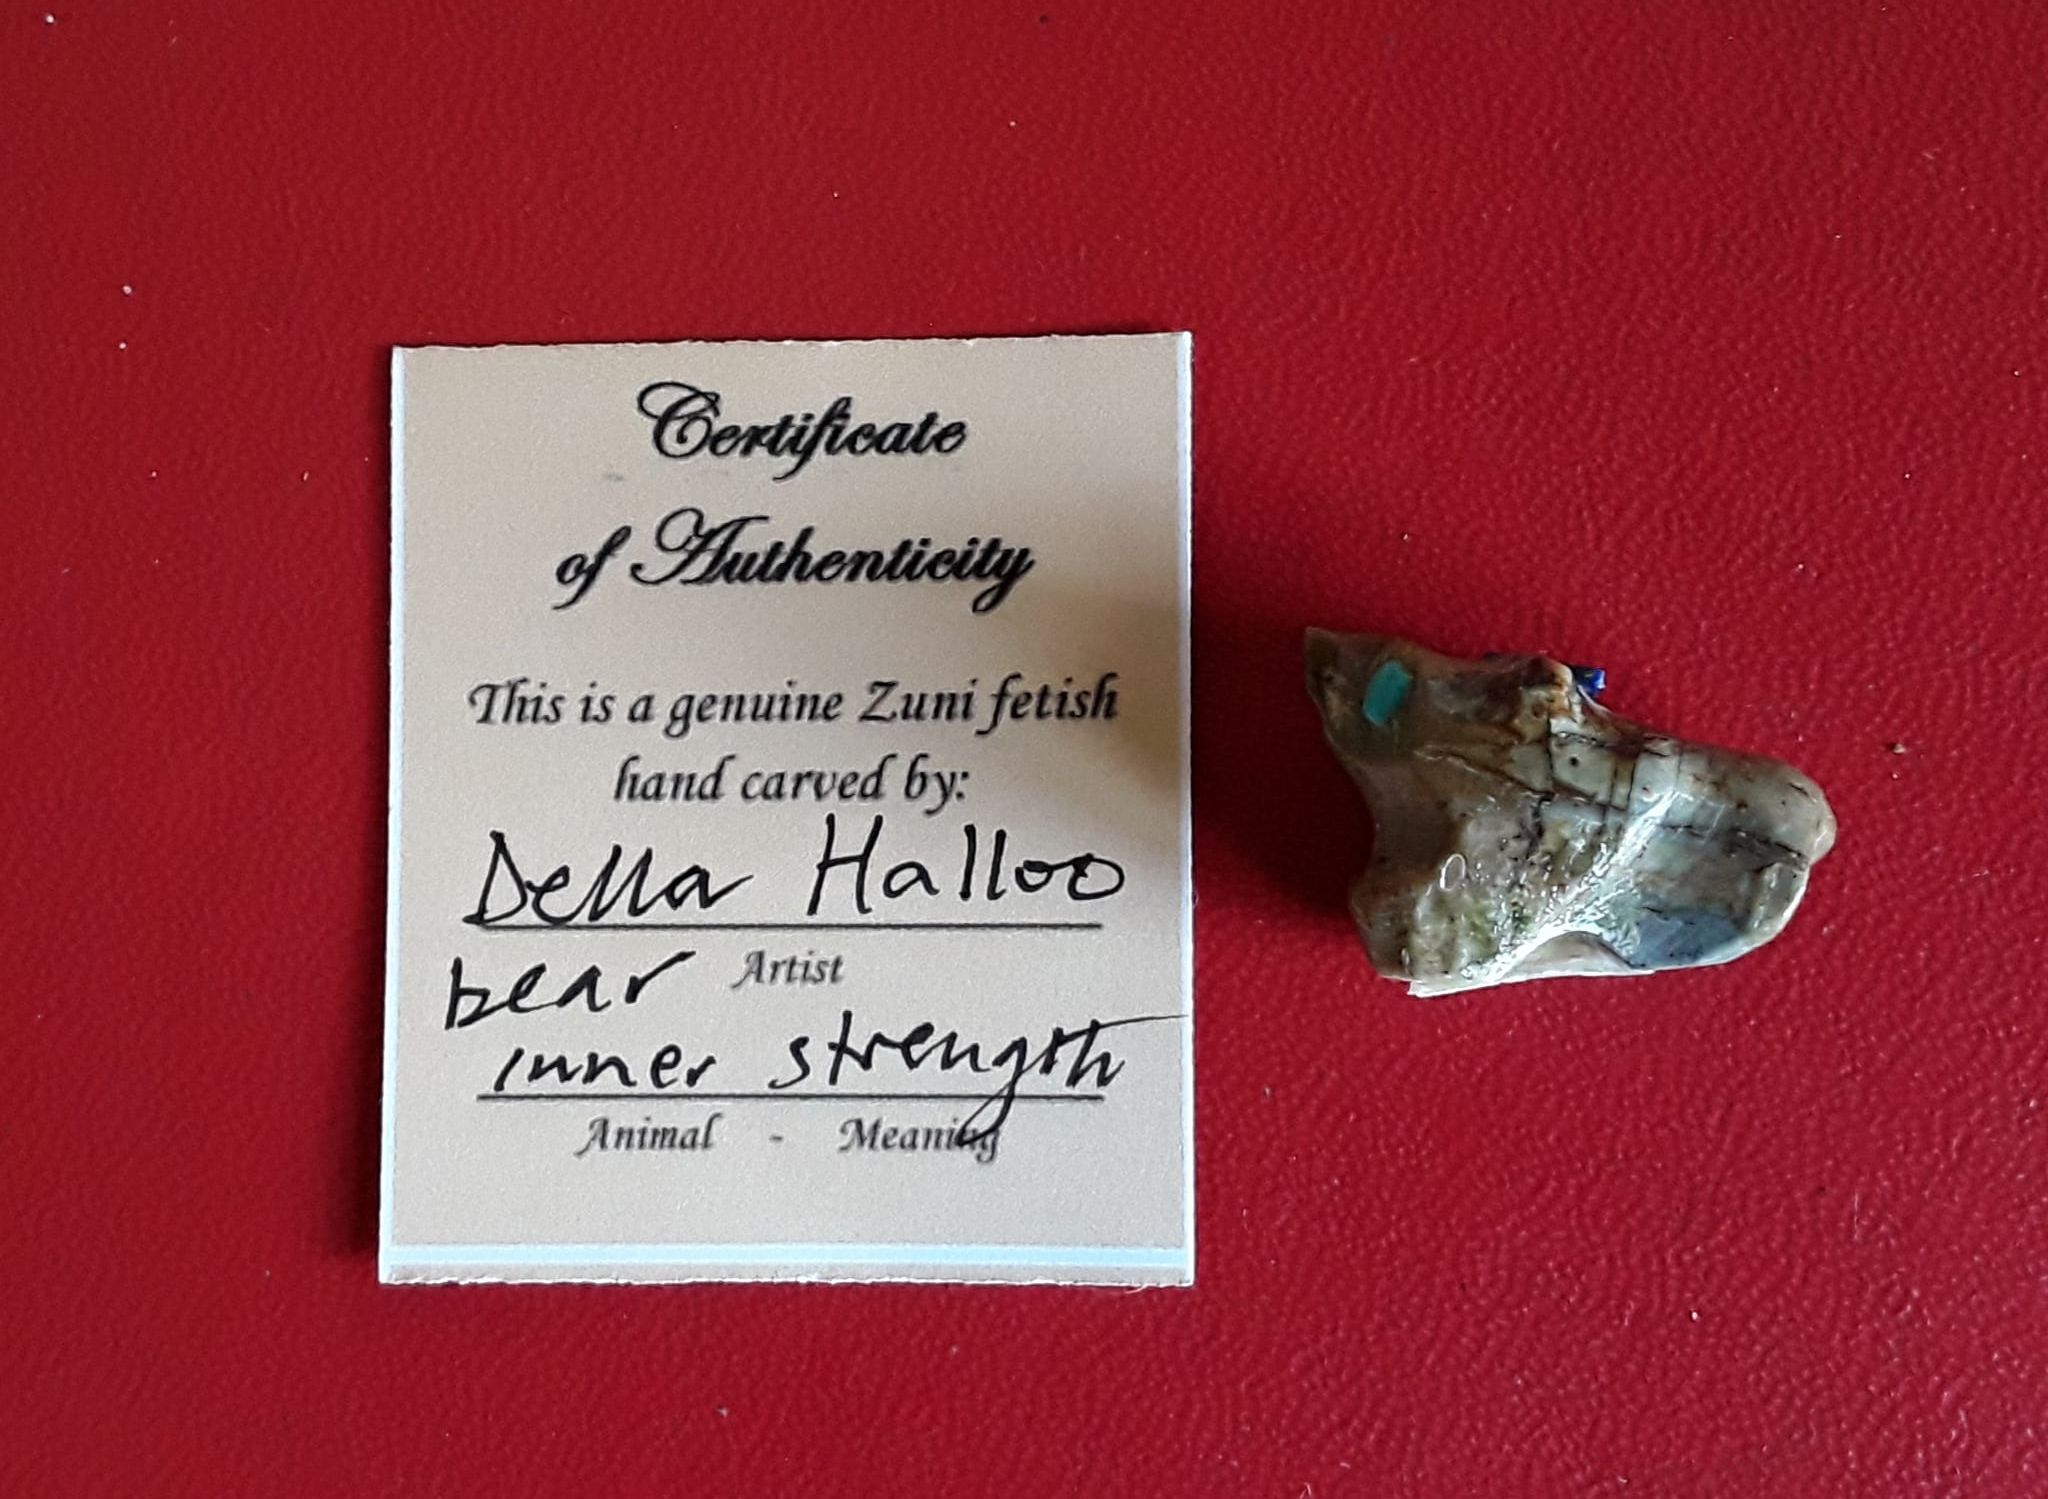 Certificate
of Authenticity
This is a genuine Zuni fetish
hand carved by:
Della Halloo
Artist
bear
inner strength
Animal - Meaning